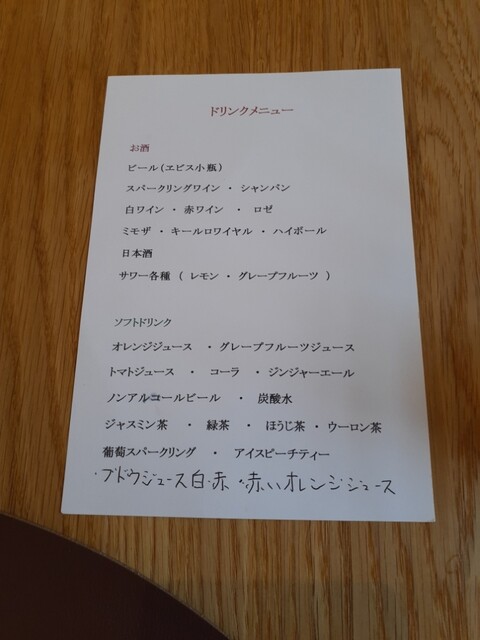 ドリンクメニュー
お酒
ビール(ヱビス小瓶)
スパークリングワイン ・ シャンパン
白ワイン ・ 赤ワイン ・ ロゼ
ミモザ ・ キールロワイヤル ・ ハイボール
日本酒
サワー各種 ( レモン ・ グレープフルーツ )
ソフトドリンク
オレンジジュース ・ グレープフルーツジュース
トマトジュース ・ コーラ ・ ジンジャーエール
ノンアルコールビール ・ 炭酸水
ジャスミン茶 ・ 緑茶 ・ ほうじ茶 ・ ウーロン茶
葡萄スパークリング ・ アイスピーチティー
・ブドウジュース白・赤 ・赤いオレンジジュース